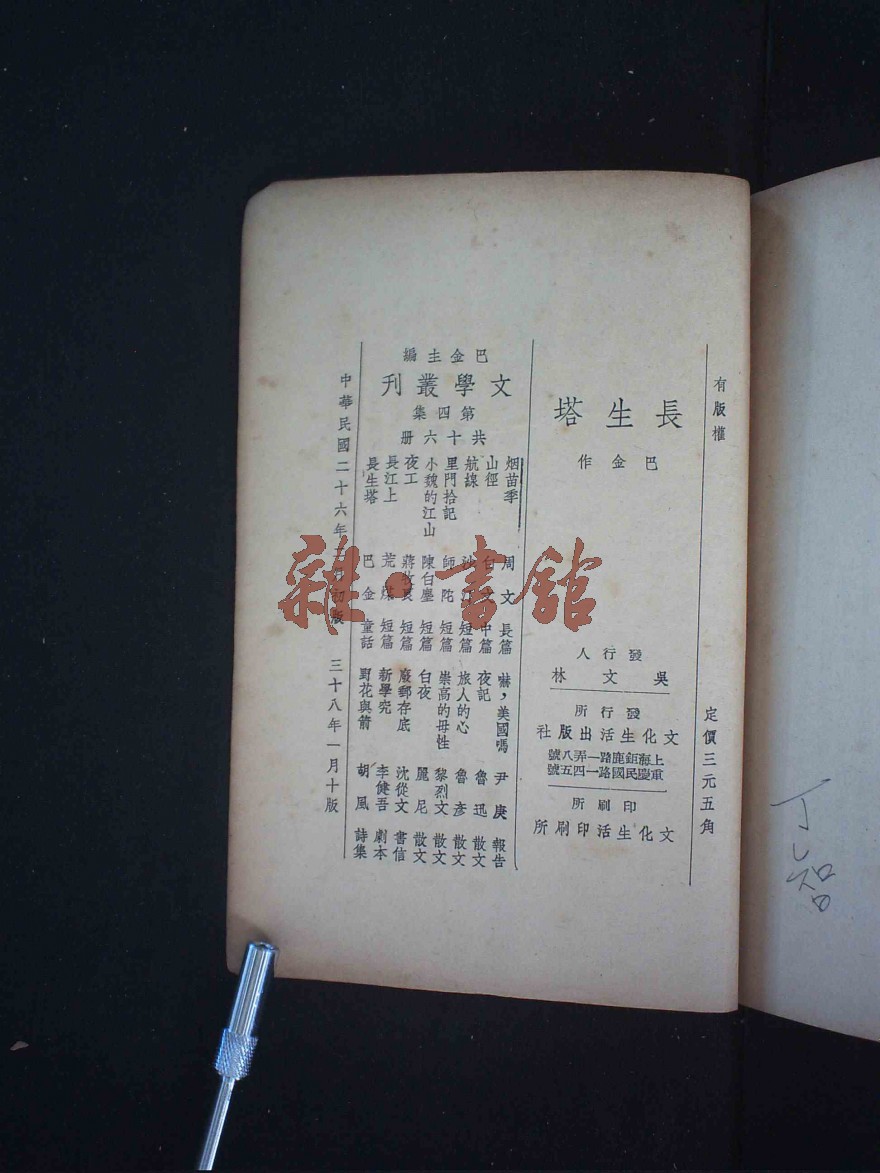 有版權
定價三元五角
長生塔
巴金作
發行人
吳文林
發行所
文化生活出版社
上海鉅鹿路一弄八號
重慶民國路一四五號
印刷所
文化生活印刷所
巴金主編
文學叢刊
第四集
共十六册
烟苗季 周文 長篇 嚇，美國嗎 尹庚 報告
山徑 白文 中篇 夜記 魯迅 散文
航線 沙汀 短篇 旅人的心 魯彥 散文
里門拾記 師陀 短篇 崇高的母性 黎烈文 散文
小魏的江山 陳白塵 短篇 白夜 麗尼 散文
夜工 蔣牧良 短篇 廢郵存底 沈從文 書信
長江上 荒煤 短篇 新學究 李健吾 劇本
長生塔 巴金 童話 野花與箭 胡風 詩集
中華民國二十六年三月初版 三十八年一月十版
雜·書館